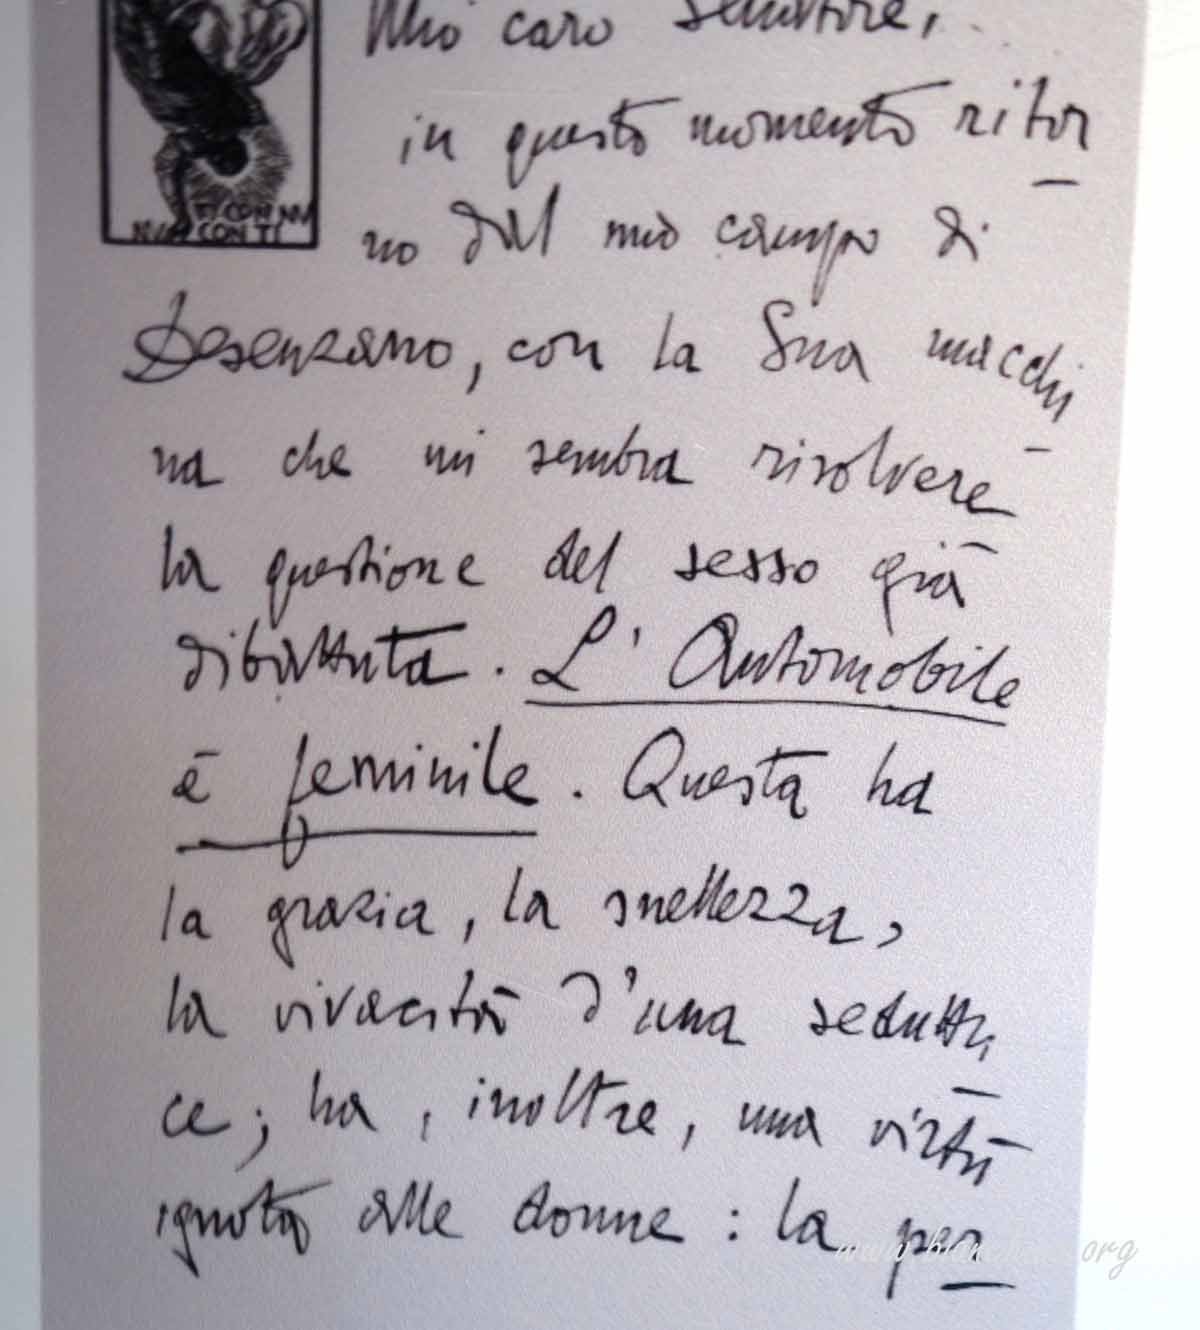 Mio caro Senatore,
in questo momento ritor
no dal mio campo di
Desenzano, con la Sua macchi
na che mi sembra risolvere
la questione del sesso già
dibattuta. L'Automobile
è feminile. Questa ha
la grazia, la snellezza,
la vivacità d'una seduttri
ce; ha, inoltre, una virtù
ignota alle donne: la per
CON TI
org